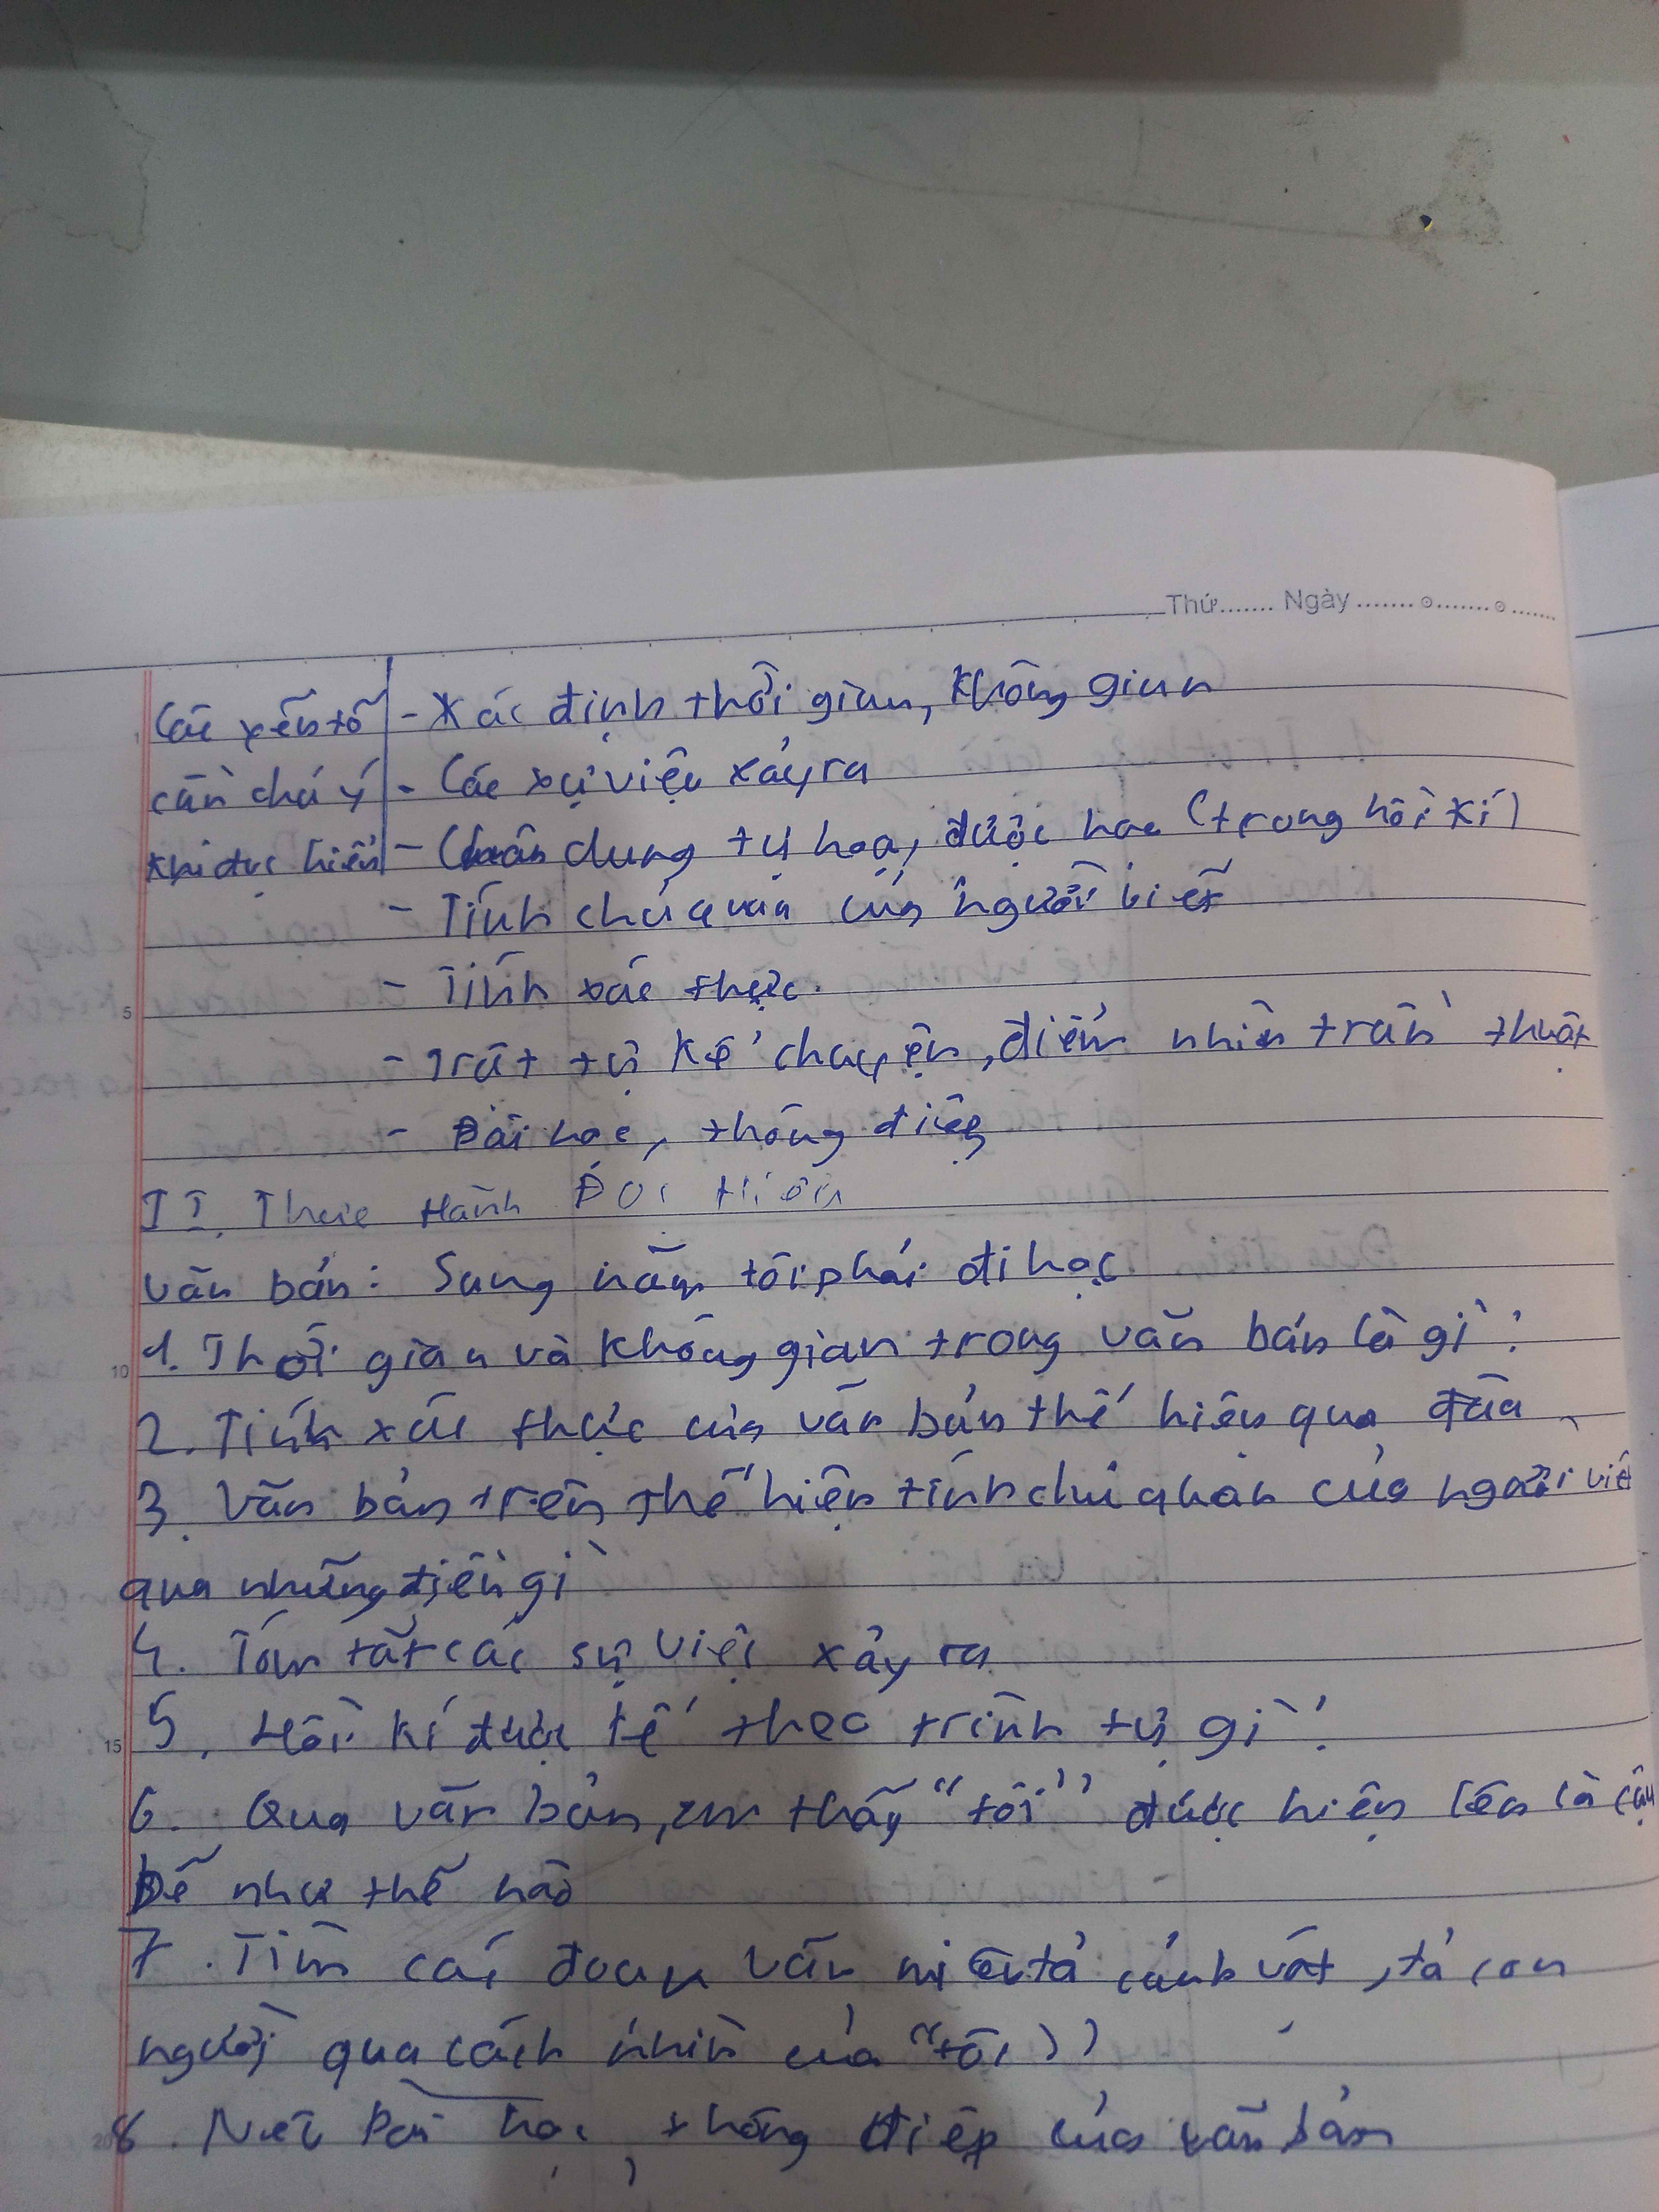 Thứ....... Ngày ...............
Các yếu tố - Xác định thời gian, không gian
cần chú ý - Các sự việc xảy ra
khi đọc hiểu - Chân dung tự hoạ, được hoạ (trong hồi kí)
- Tính chủ quan của người viết
- Tính xác thực.
5
- Trật tự kể chuyện, điểm nhìn trần thuật
- Bài học, thông điệp
II. Thực Hành Đọc Hiểu
văn bản: Sang năm tôi phải đi học
10 1. Thời gian và không gian trong văn bản là gì?
2. Tính xác thực của văn bản thể hiện qua đâu
3. Văn bản trên thể hiện tính chủ quan của người viết
qua những điều gì
4. Tóm tắt các sự việc xảy ra
15 5. Hồi kí được kể theo trình tự gì?
6. Qua văn bản, em thấy "tôi" được hiện lên là cậu
bé như thế nào
7. Tìm các đoạn văn miêu tả cảnh vật, tả con
người qua cách nhìn của "tôi"
20 8. Nêu bài học, thông điệp của văn bản